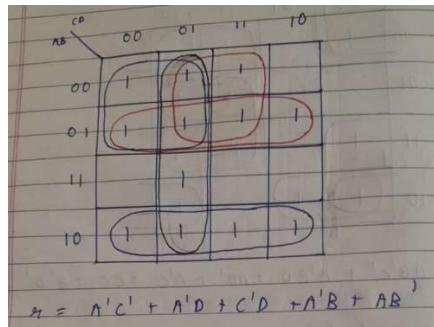 CD
AB 00 01 11 10
00 1 1 1
01 1 1 1 1
11 1
10 1 1 1 1
r = A'C' + A'D + C'D + A'B + AB'